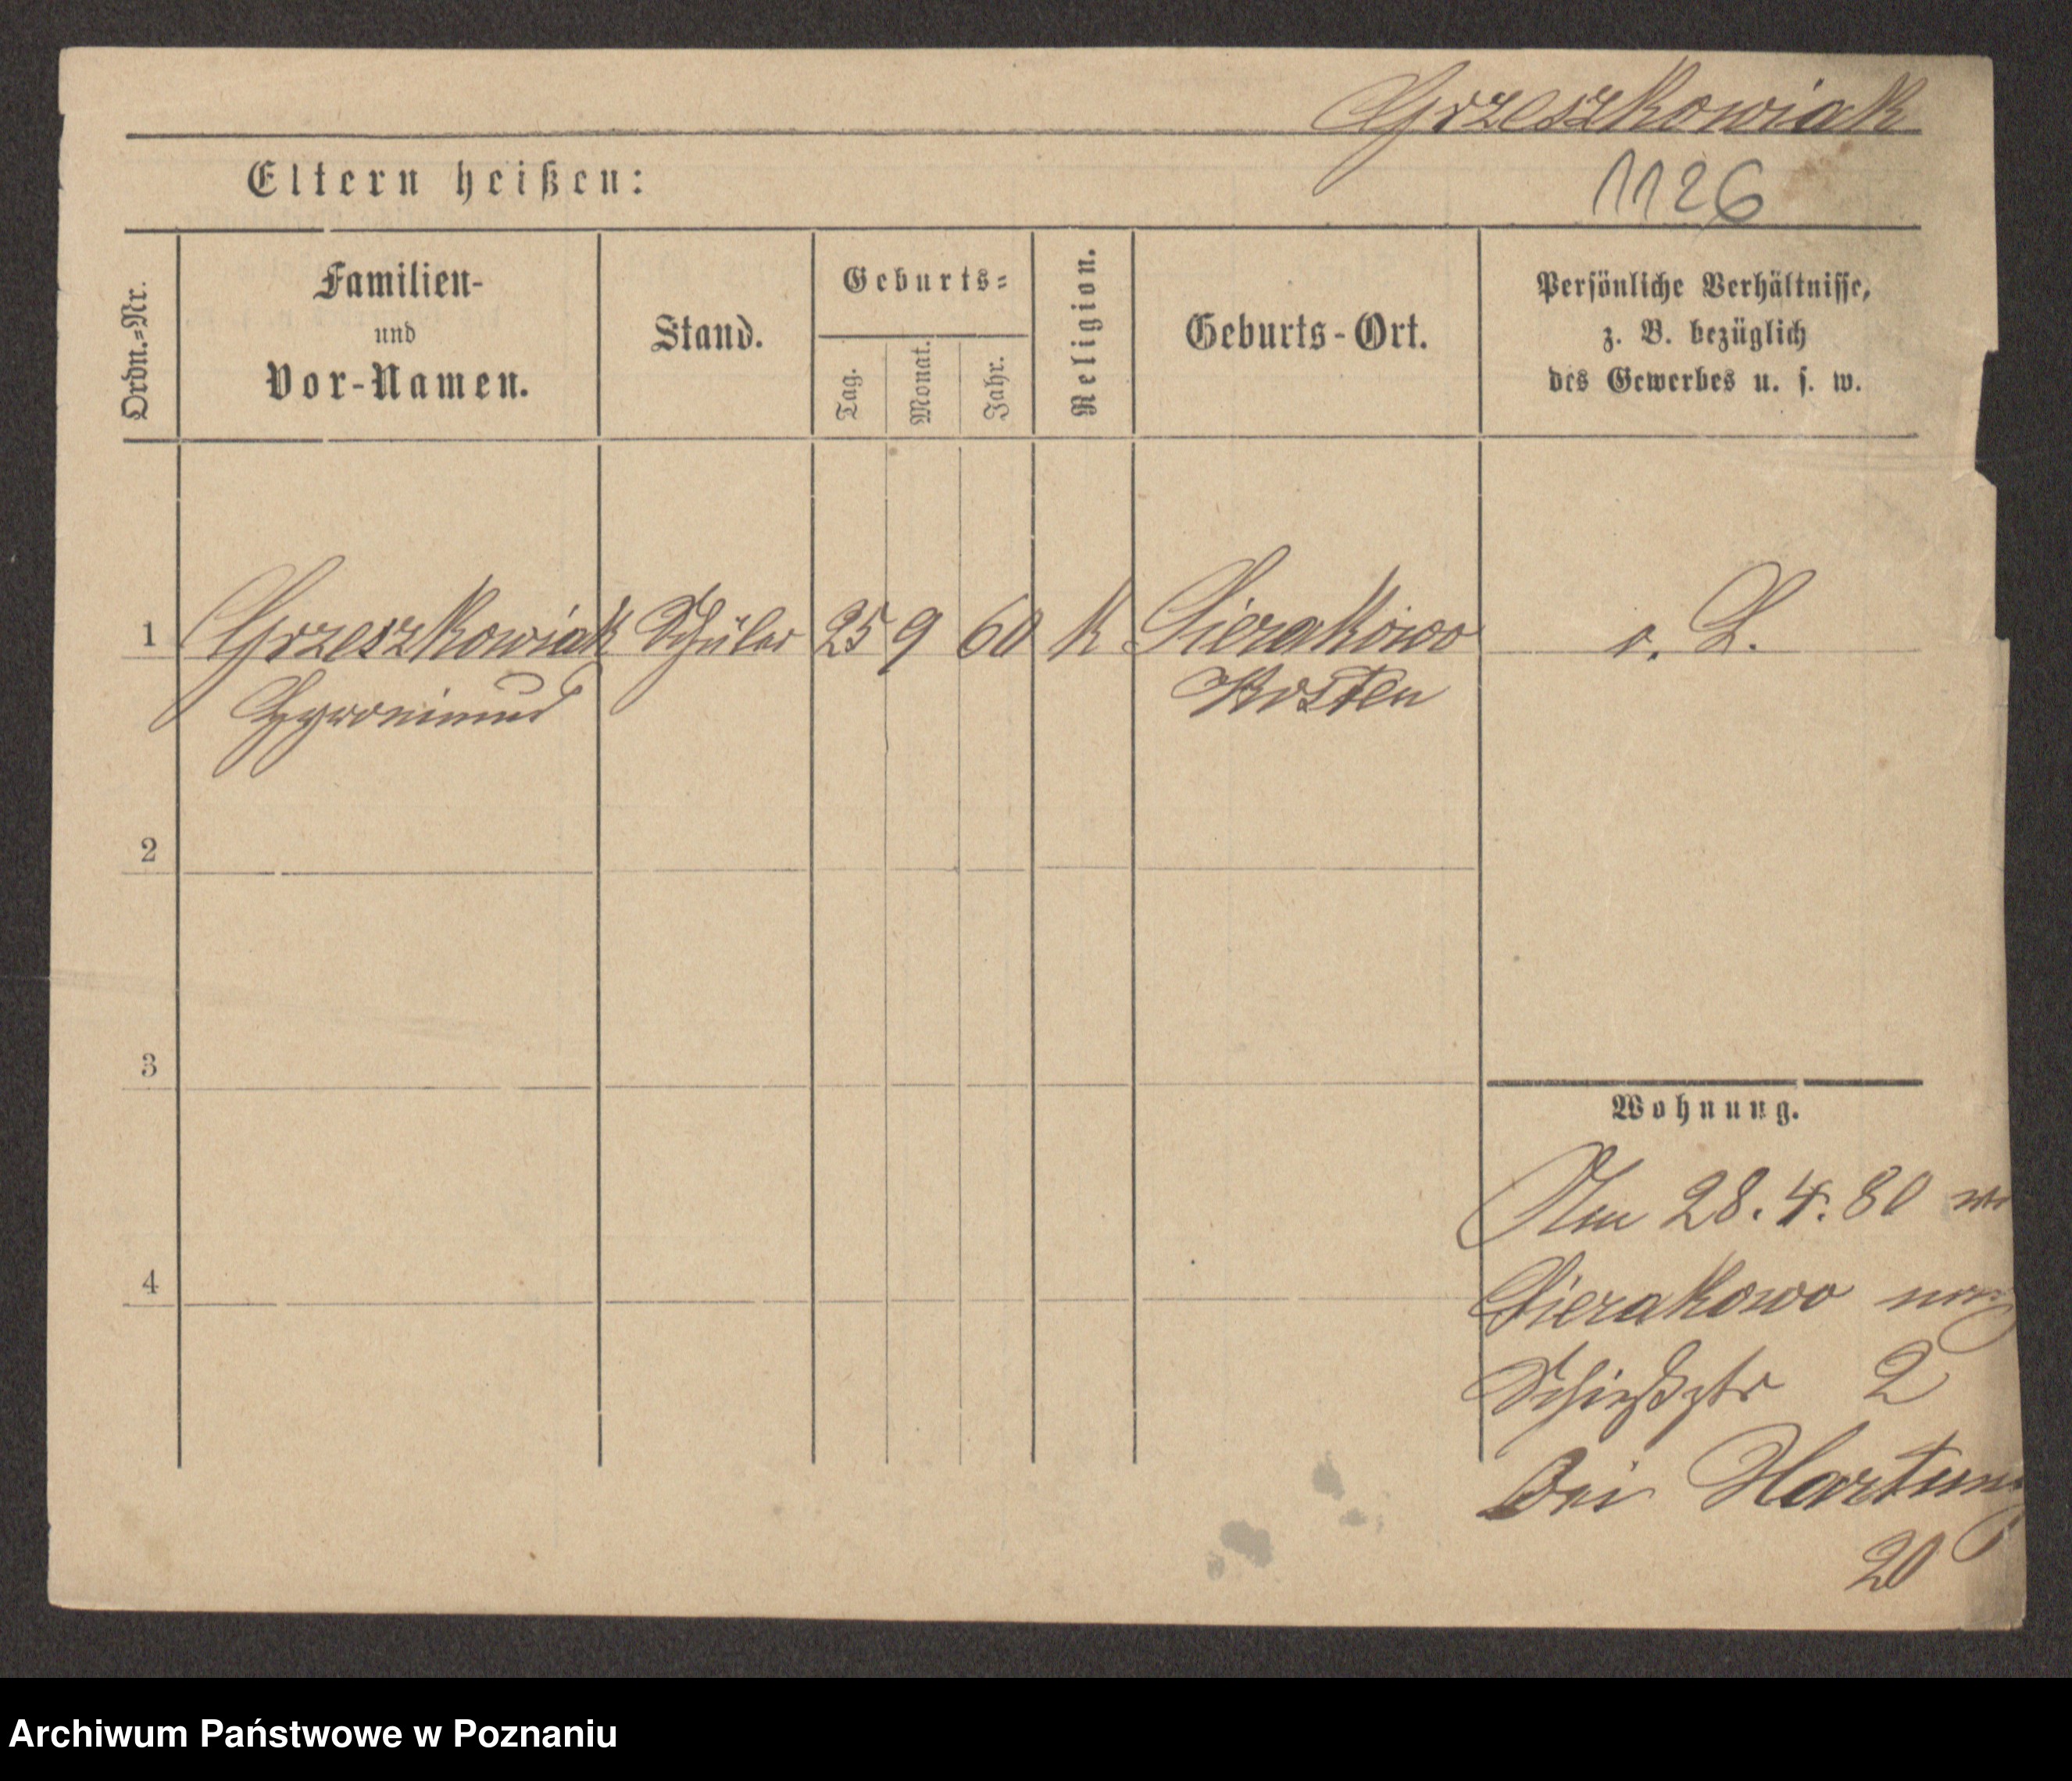 Grzeszkowiak
Eltern heißen:
1126
Ordn.=Nr.
Familien-
und
Vor-Namen.
Stand.
Geburts=
Tag.
Monat.
Jahr.
Religion.
Geburts-Ort.
Persönliche Verhältnisse,
z. B. bezüglich
des Gewerbes u. s. w.
1 Grzeszkowiak Schüler 25 9 60 k Sierakowo o. L.
Kosten
2
3
4
Wohnung.
Am 28. 4. 80
Sierakowo
Schießstr 2
bei Hartung
20
Archiwum Państwowe w Poznaniu